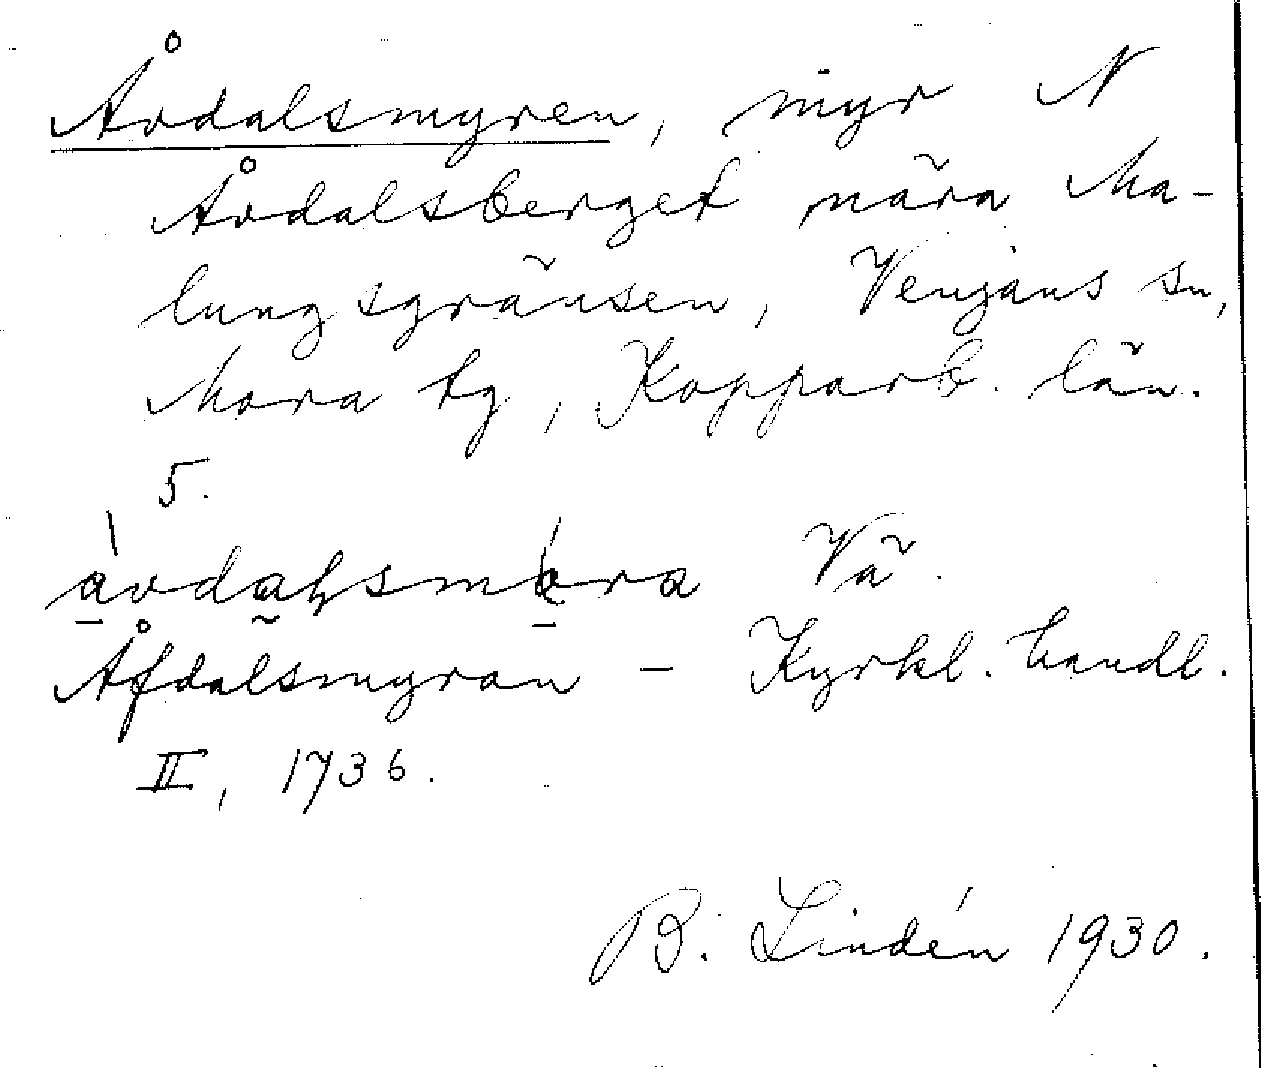 Åvdalsmyren, myr N
Åvdalsberget nära Ma-
lungsgränsen, Venjans sn,
Mora tg, Kopparb. län.
5.
Vä.
Åfdalsmyran – Kyrkl. handl.
II, 1736.
B. Lindén 1930.